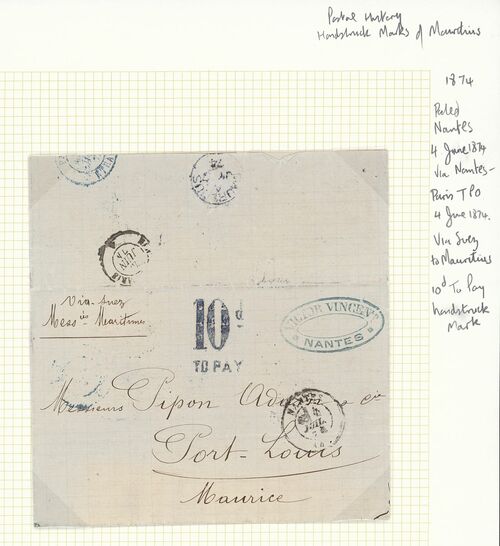 Postal History
Handstruck Marks of Mauritius
1874
Posted
Nantes
4 June 1874
Via Nantes-
Paris TPO
4 June 1874.
Via Suez
to Mauritius
10d To Pay
handstruck
Mark
PARIS
Via Suez
Mess ies Maritimes
10d
TO PAY
VICTOR VINCENT
NANTES
Messieurs Pipon Adam & cie
NANTES
4
Port-Louis
Maurice